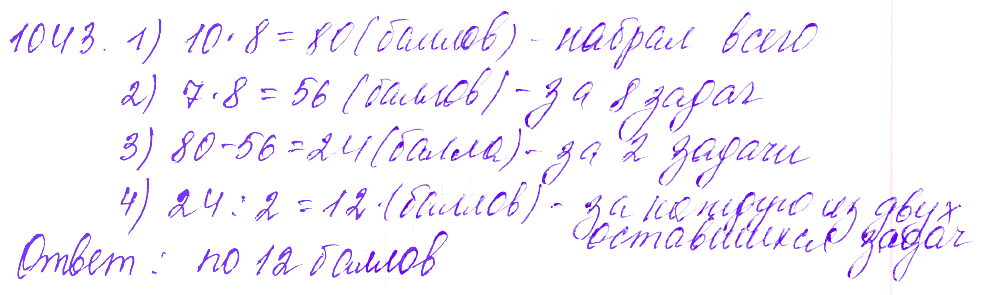 1043. 1) 10·8=80(баллов)-набрал всего
2) 7·8=56(баллов)-за 8 задач
3) 80-56=24(балла)-за 2 задачи
4) 24:2=12·(баллов)-за каждую из двух
оставшихся задач
Ответ: по 12 баллов